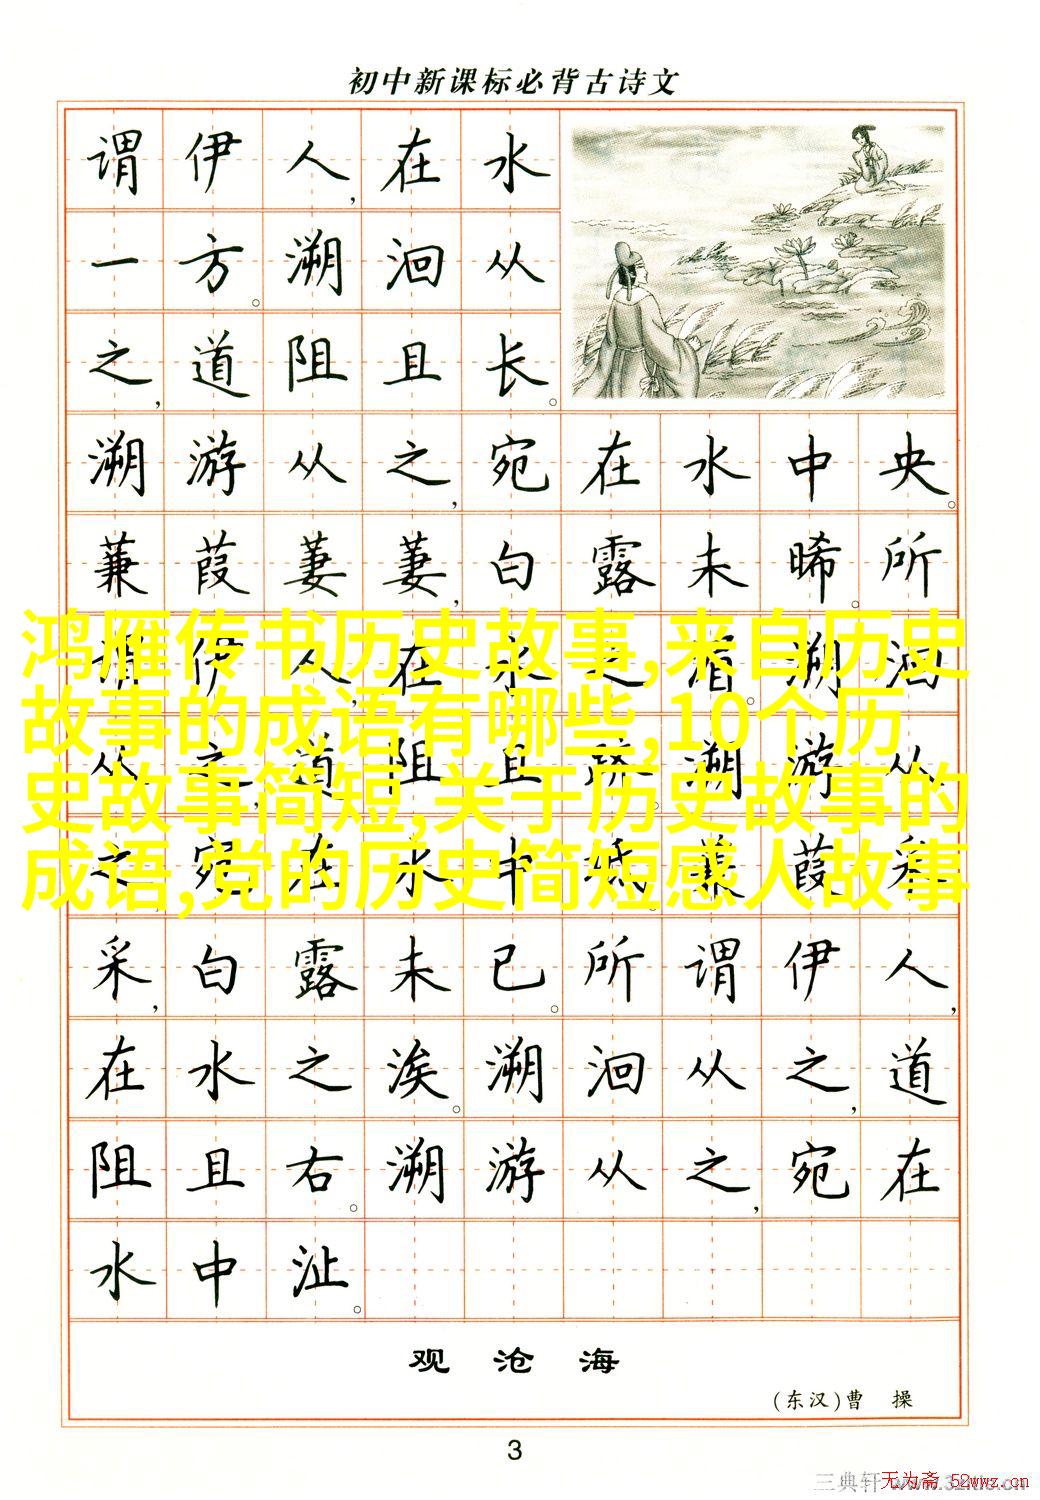 初中新课标必背古诗文
谓伊人,在水
一方。溯洄从
之,道阻且长。
溯游从之,宛在水中央。
蒹葭萋萋,白露未晞。所
谓伊人,在水之湄。溯洄
鸿雁传书历史故事,来自历史
故事的成语有哪些,10个历
从之,道阻且跻。溯游从
史故事简短,关于历史故事的
之,宛在水中坻。蒹葭采
成语,党的历史简短感人故事
采,白露未已。所谓伊人,
在水之涘。溯洄从之,道
阻且右。溯游从之,宛在
水中沚。
观沧海
(东汉)曹 操
3
三典轩
无为斋 52wwz.cn